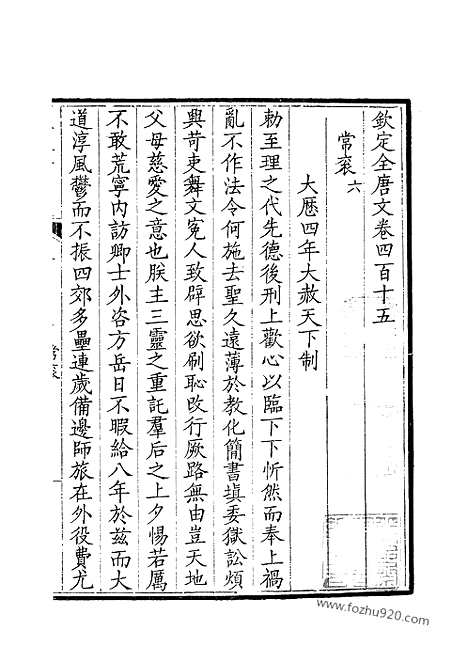 欽定全唐文卷四百十五
常衮 六
大厯四年大赦天下制
勅至理之代先德後刑上歡心以臨下下忻然而奉上禍
亂不作法令何施去聖久遠薄於教化簡書塡委獄訟煩
興苛吏舞文寃人致辟思欲刷恥改行厥路無由豈天地
父母慈愛之意也朕主三靈之重託羣后之上夕惕若厲
不敢荒寧内訪卿士外咨方岳日不暇給八年於兹而大
道淳風鬱而不振四郊多壘連歲備邊師旅在外役費尤
www.fozhu920.com